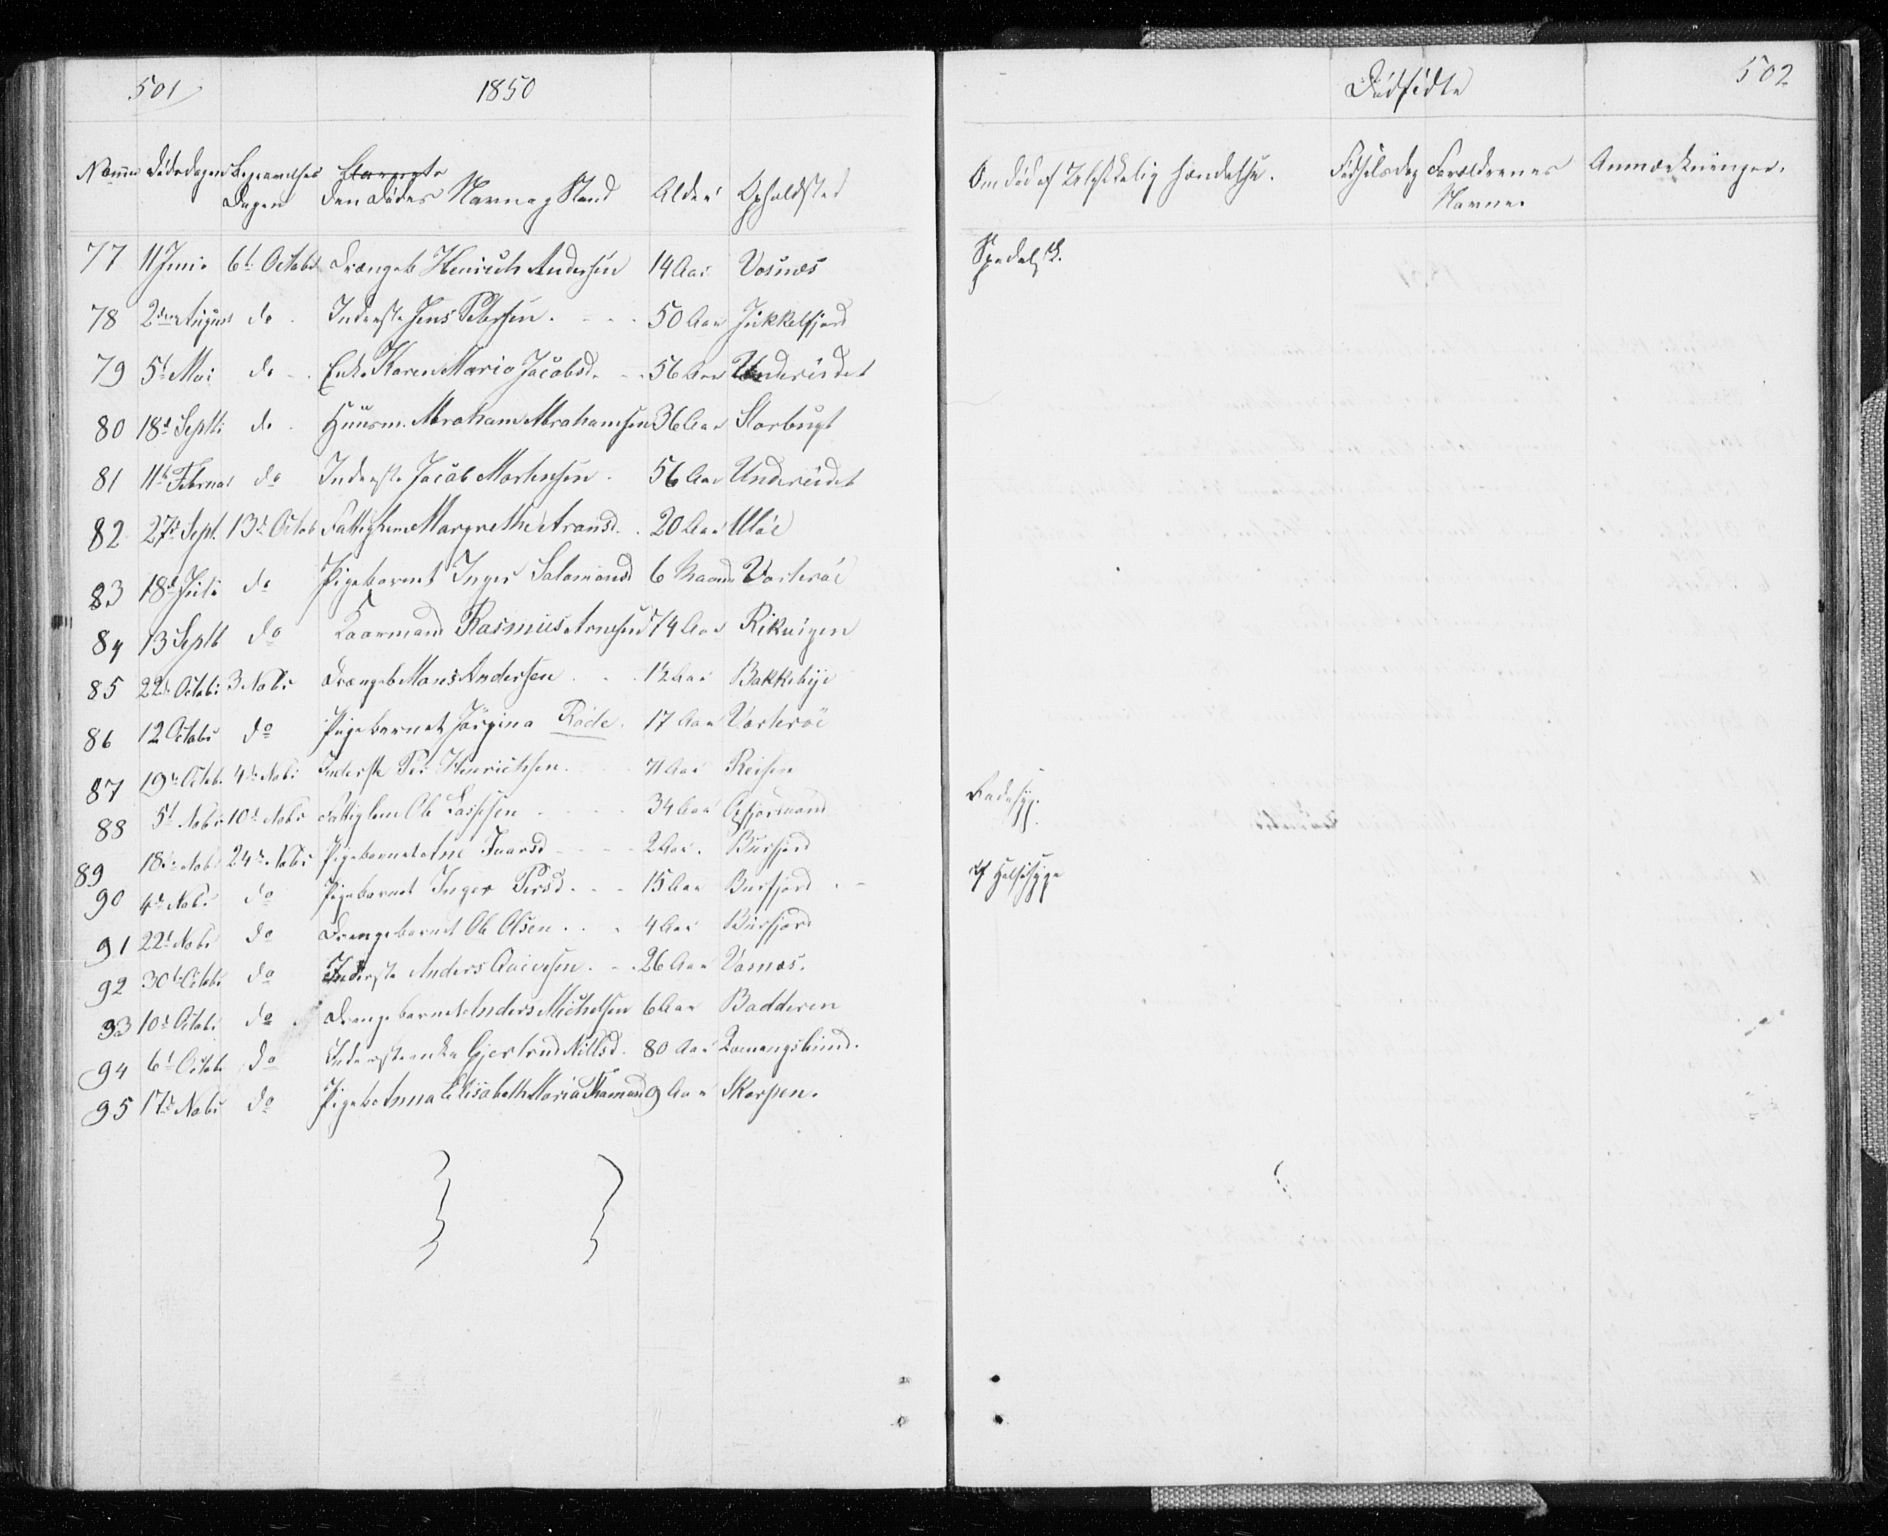 501
1850
Numer Dødsdagen Begravelses Dagen Den Dødes Navn og Stand Alder Opholdsted
77 11 Juni 6te Octobr Drængeb Henrich Andersen 14 Aar Vosnæs
78 2den August do Inderste Jens Petersen. 50 Aar Jukkelfjord
79 5t Mai do Enke Karen Maria Jacobsd. 56 Aar Undereidet
80 18d Septb do Huusm. Abraham Abrahamsen 36 Aar Storbugt
81 11t Februar do Inderste Jacob Mortensen. 56 Aar Undereidet
82 27d Sept. 13d Octob Fattiglem Margrethe Aronsd. 20 Aar Uløe
83 18d Juli do Pigebarnet Inger Salamonsd 6 Maand Vorterøe
84 13 Septb do Kaarmand Rasmus Arnesen 74 Aar Rikvigen
85 22d Octobr 3 Nobr Drængeb Mons Andersen 12 Aar Bakkebye
86 12 Octobr do Pigebarnet Jørgina Røde. 17 Aar Vorterøe
87 19d Octob. 4d Nobr Inderste Per Henrichsen. Aar Reisen
88 5t Nobr 10d Nobr Fattiglem Ole Lassesen 34 Aar
89 18d Nobr 24d Nobr Pigebarnet Ane Ivarsd 2 Aar. Burfjord
90 4d Nobr do Pigebarnet Inger Persd. 15 Aar Burfjord
91 22d Nobr do Drengebarnet Ole Olsen. 4 Aar Burfjord
92 30te Octobr do Inderste Anders 26 Aar Vasnæs.
93 10d Octobr do Drengebarnet Anders Michelsen 6 Aar Badderen
94 6t Octobr do Inderste enke Gjertrud Nillsd. 80 Aar
95 17d Nobr do Pigeb Anna Elisabeth Maria 9 Aar Skorpen.
502
Dødfødte
Om død af Ulykkelig Hændelse. Fødselsdag Forældrenes Navne. Anmærkninger.
Spedalsk.
Radesyg.
af Halssyge